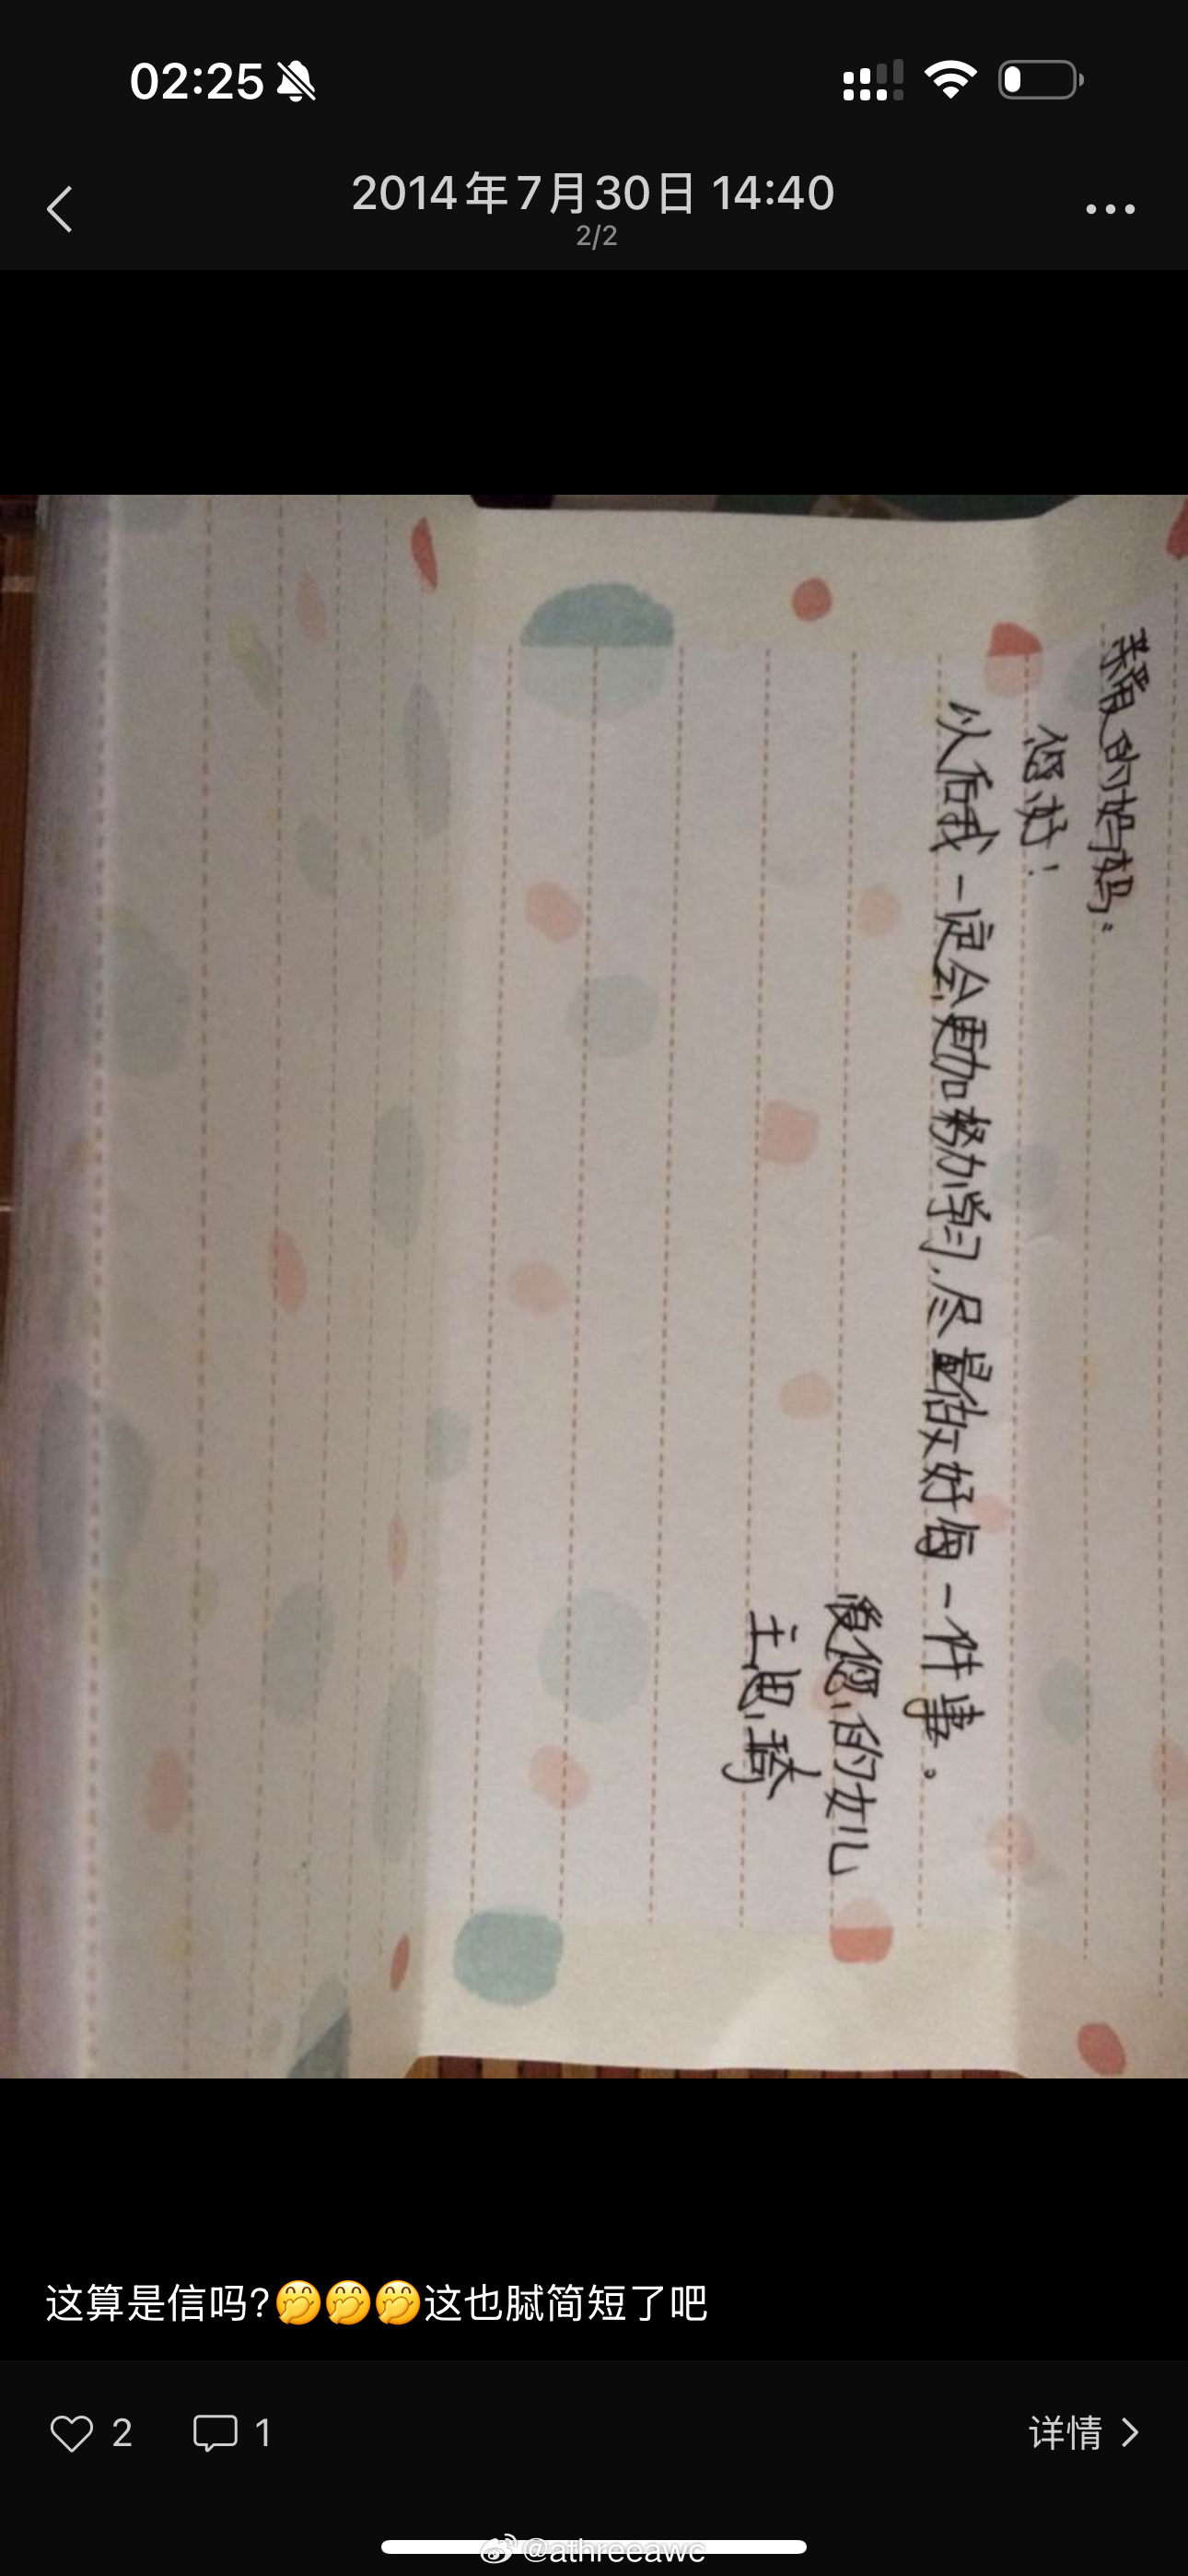 02:25
2014年7月30日 14:40
2/2
亲爱的妈妈:
您好!
以后我一定会更加努力学习.尽量做好每一件事。
爱您的女儿
王思琦
这算是信吗?🤭🤭🤭这也腻简短了吧
2
1
详情
@athreeawc